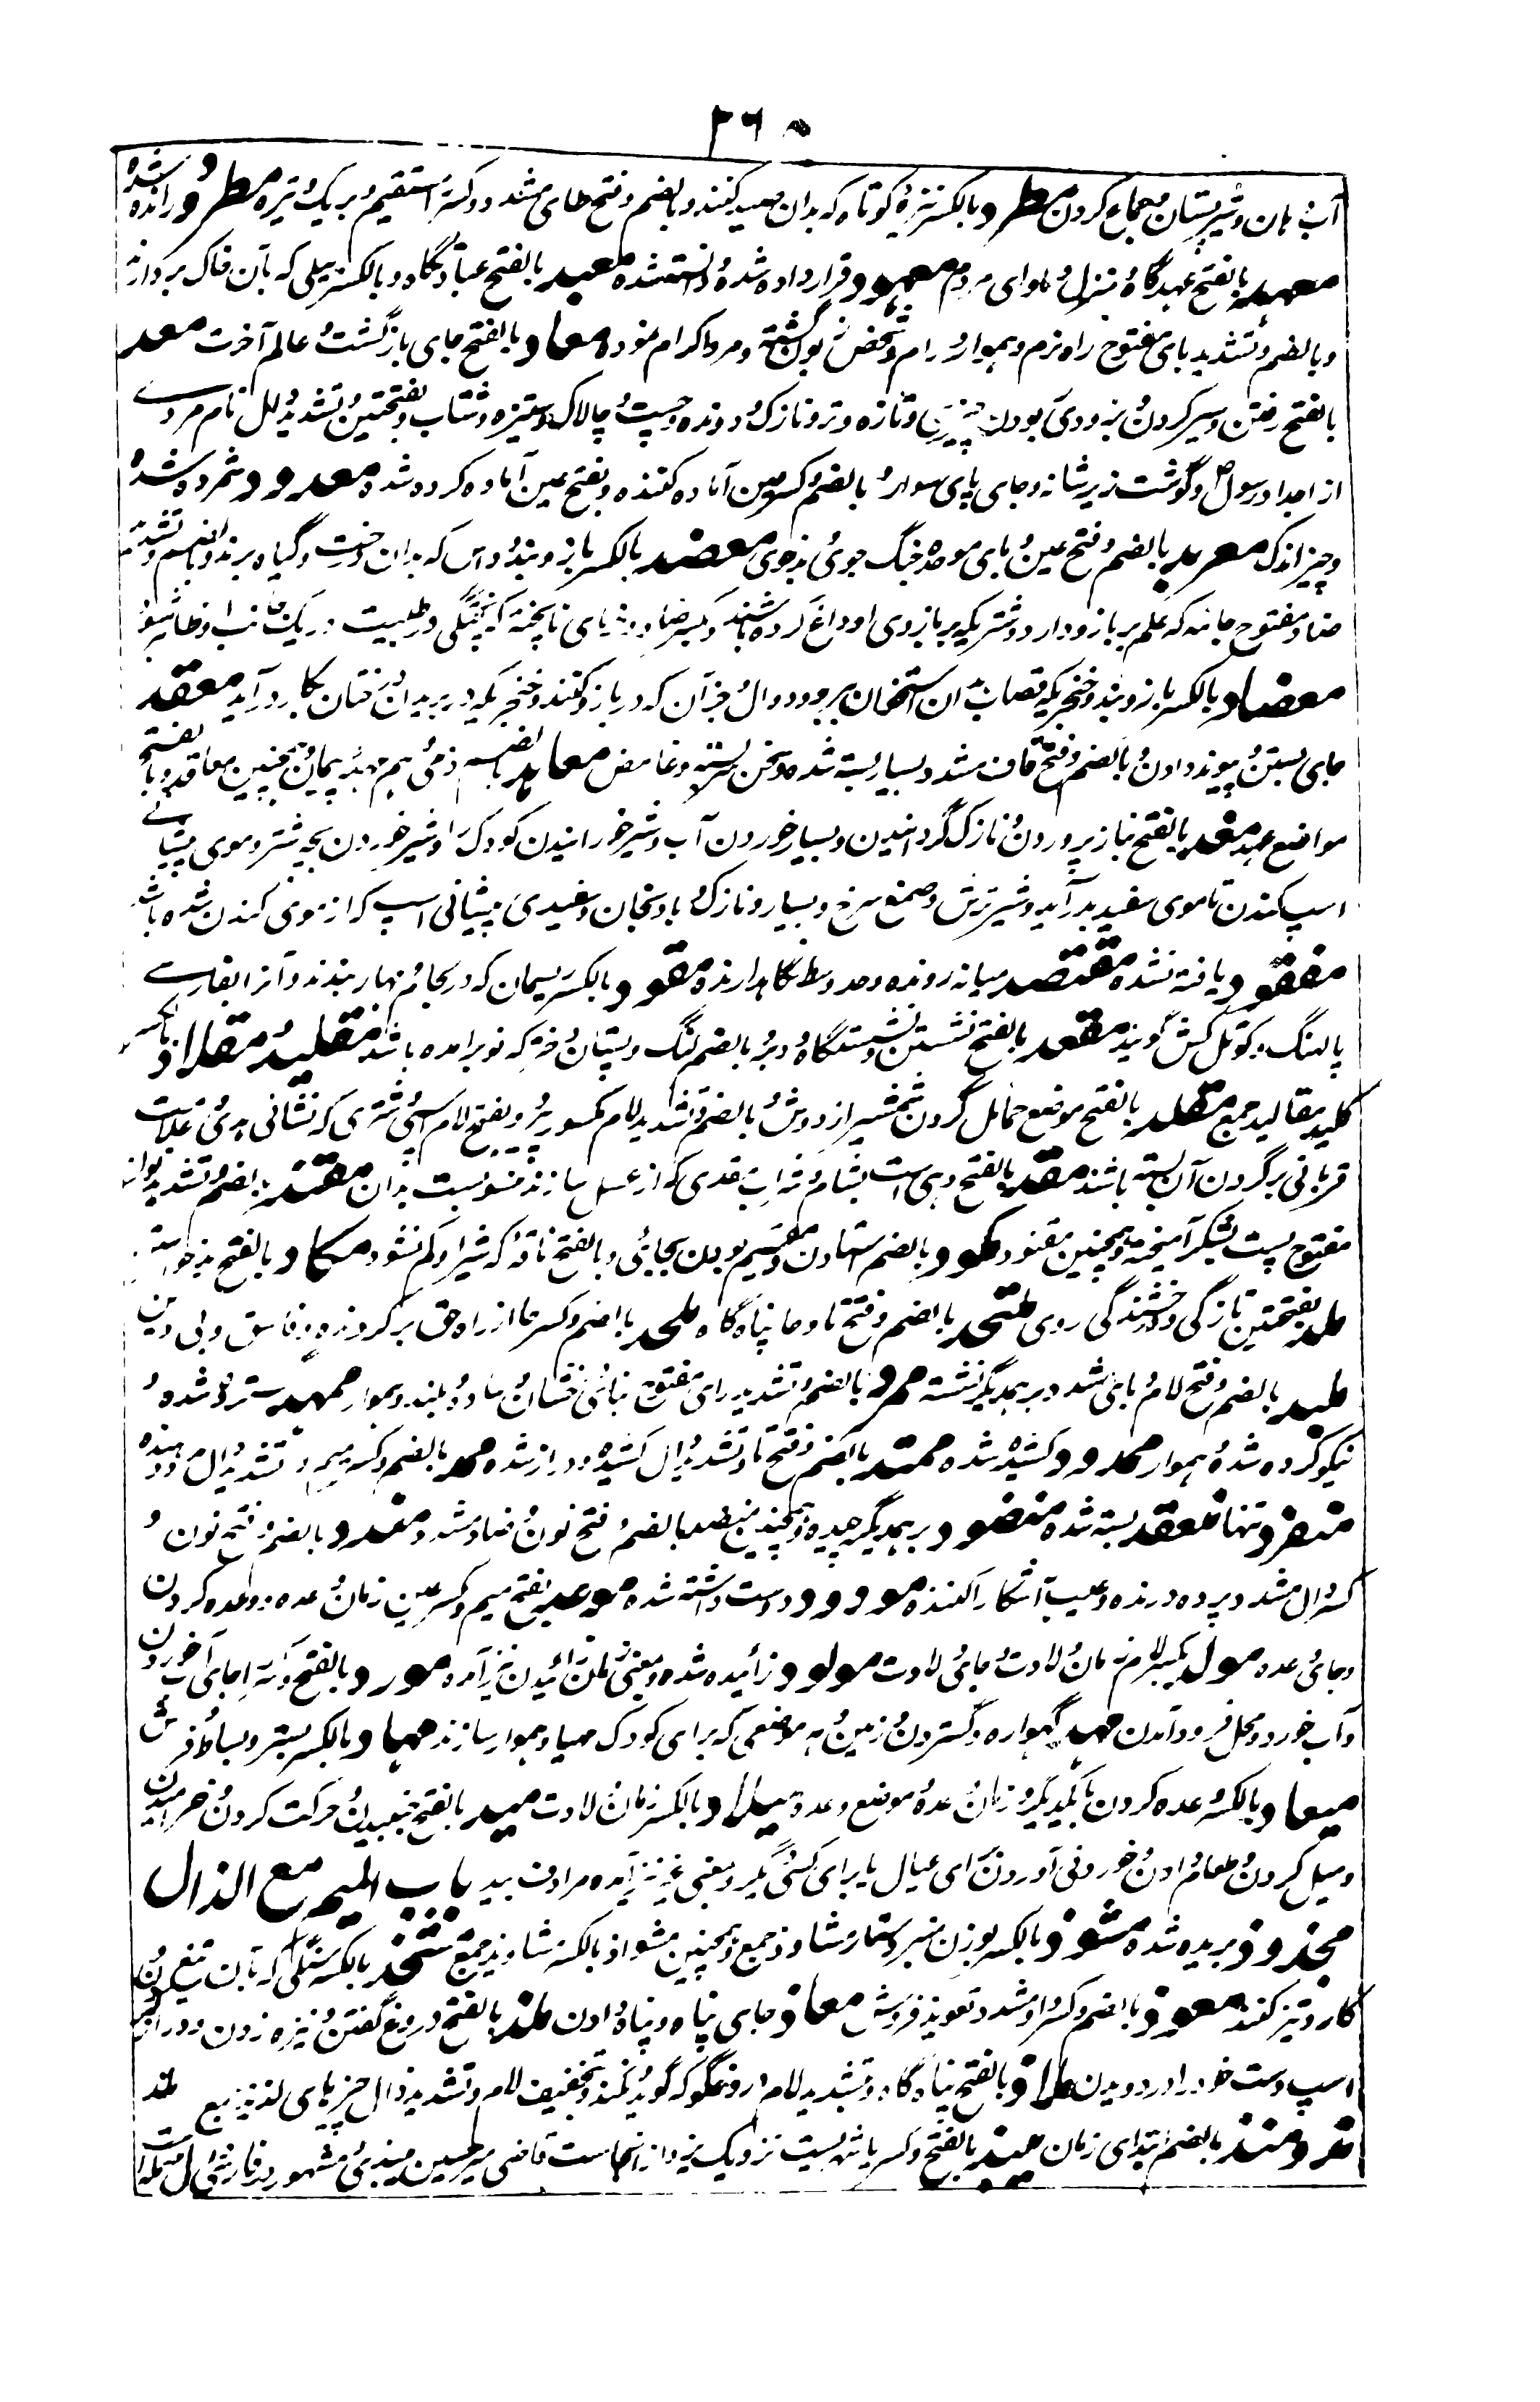 ۲۶۰
آب دهان و شیر پستان و جماع کردن مطرد بالکسر نیزهٔ کوتاه که بدان صید کنند و بالضم و فتح طای مشدد و کسر مستقیم و بر یک وتیره مطرود رانده شده
معهد بالفتح عهدگاه و منزل و ماوای مردم معهود قرار داده شده و دانسته شده معبد بالفتح عبادتگاه و بالکسر بیلی که بآن خاک بردارند
و بالضم و تشدید بای مفتوح راه نرم و هموار و رام و شخص زبون گشته و مرد اکرام نموده معاد بالفتح جای بازگشت و عالم آخرت معد
بالفتح رفتن و سیر کردن و بزودی بودن چیزی و تازه و تر و نازک و دونده و چست و چالاک و ستیزه و شتاب و بفتحتین و تشدید دال نام مردی
از اجداد رسول و گوشت زیر شانه و جای پای سوار و بالضم و کسر عین آماده کننده و بفتح عین آماده کرده شده معدود شمرده شده
و چیز اندک معربد بالضم و فتح عین و بای موحده جنگ جوی و بدخوی معضد بالکسر بازوبند و داس که بدان درخت و گیاه برند و بالضم و تشدید
ضاد مفتوح جامه که علم بر بازو دارد و شتریکه بر بازوی او داغ کرده باشند و بکسر ضاد
معضاد بالکسر بازوبند و خنجریکه قصاب بدان استخوان ببرد و دوال و جز آن که در بازو کنند و خنجریکه در بریدن درختان بکار در آید معقد
جای بستن و پیوند دادن و بالضم و فتح قاف مشدد بسیار بسته شده و سخن بسته و غامض معاهد بالضم ذمی و هم عهد و پیمان و همچنین معاقد و بالفتح
مواضع عهد مغد بالفتح بناز پروردن و نازک گردانیدن و بسیار خوردن آب و شیر خورانیدن کودک را و شیر خوردن بچه شتر و موی پیشانی
اسپ کندن تا موی سفید بر آید و شیر ترش و صمغ سرخ و بسیار و نازک و بادنجان و سفیدی پیشانی اسپ که از موی کندن شده باشد
مفقود یافته نشده مقتصد میانه رونده و حد وسط نگاهدارنده مقود بالکسر ریسمان که در لجام و مهار بندند و آنرا بفارسی
پالهنگ و کوتل کش گویند مقعد بالفتح نشستن و نشستنگاه و دبر و بالضم لنگ و پستان دختر که نو برآمده باشد مقلید و مقلاد بالکسر
کلید مقالید جمع مقلد بالفتح موضع حمائل کردن شمشیر از دوش و بالضم و تشدید لام مکسور پیرو و بفتح لام اسپ و شتری که نشانی هدی و علامت
قربانی بر گردن آن بسته باشند مقد بالفتح دهی است بشام و شراب مقدی که از عسل سازند منسوبست بدان مقند بالضم و تشدید نون
مفتوح پست بشکر آمیخته و همچنین مقنود مکود بالضم استادن و مقیم بودن بجائی و بالفتح ناقه که شیر او کم نشود مکاد بالفتح
ملد بفتحتین تازگی و درخشندگی روی ملتحد بالضم و فتح تا و حا پناه گاه ملحد بالضم و کسر حا از راه حق برگردنده و فاسق و بی دین
ملبد بالضم و فتح لام و بای مشدد بر همدیگر نشسته ممرد بالضم و تشدید رای مفتوح بنای درخشان و ساده و بلند و هموار ممهد گسترده شده و
نیکو کرده شده و هموار ممدود کشیده شده ممتد بالضم و فتح تا و تشدید دال کشیده و دراز شده ممد بالضم و کسر میم و تشدید دال مدد دهنده
منفرد تنها منعقد بسته شده منضود بر همدیگر چیده و همچنین منضد بالضم و فتح نون و ضاد مشدد مندد بالضم و فتح نون و
کسر دال مشدد پرده درنده و عیب آشکارا کننده مودود دوست داشته شده موعد بفتح میم و کسر عین زمان وعده و وعده کردن
و جای وعده مولد بکسر لام زمان ولادت و جای ولادت مولود زائیده شده و بمعنی زمان زائیدن نیز آمده مورد بالفتح و کسر را جای آب خوردن
و آب خورد و محل فرود آمدن مهد گهواره و گستردن و زمین و هر موضعی که برای کودک مهیا و هموار سازند مهاد بالکسر بستر و بساط و فرش
میعاد بالکسر وعده کردن با یکدیگر و زمان وعده و موضع وعده میلاد بالکسر زمان ولادت مید بالفتح جنبیدن و حرکت کردن و خرامیدن
و میل کردن و طعام دادن و خوردنی آوردن برای عیال یا برای کسی دیگر و بمعنی غیر نیز آمده مرادف بید باب المیم مع الذال
مجذوذ بریده شده مشوذ بالکسر بوزن منبر دستار مشاوذ جمع و همچنین مشواذ بالکسر مشاویذ جمع مشحذ بالکسر سنگی که بآن تیغ و
کارد تیز کنند معوذ بالضم و کسر واو مشدد تعویذ فروش معاذ جای پناه و پناه دادن ملذ بالفتح دروغ گفتن و نیزه زدن و دراز کردن
اسپ دست خود را در دویدن ملاذ بالفتح پناه گاه و بتشدید لام دروغگو که گوید و نکند و بتخفیف لام و تشدید ذال چیزهای لذیذ جمع ملذ
مذ و منذ بالضم ابتدای زمان میبذ بالفتح و کسر با شهریست نزدیک یزد از آنجاست قاضی میر حسین میبذی مشهور